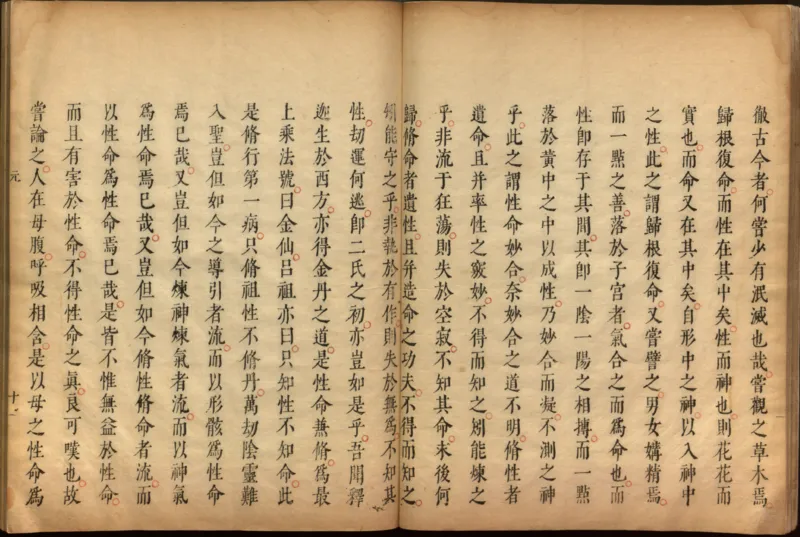 徹古今者何嘗少有泯滅也哉嘗觀之草木焉
歸根復命而性在其中矣性而神也則花花而
實也而命又在其中矣自形中之神以入神中
之性此之謂歸根復命又嘗譬之男女媾精焉
而一點之善落於子宮者氣合之而為命也而
性即存于其間其即一陰一陽之相摶而一點
落於黃中之中以成性乃妙合而凝不測之神
乎此之謂性命妙合奈妙合之道不明脩性者
遺命且并率性之竅妙不得而知之矧能煉之
乎非流于狂蕩則失於空寂不知其命末後何
歸脩命者遺性且并造命之功夫不得而知之
矧能守之乎非執於有作則失於無為不知其
性劫運何逃即二氏之初亦豈如是乎吾聞釋
迦生於西方亦得金丹之道是性命兼脩為最
上乘法號曰金仙呂祖亦曰只知性不知命此
是脩行第一病只脩祖性不脩丹萬劫陰靈難
入聖豈但如今之導引者流而以形骸為性命
焉已哉又豈但如今煉神煉氣者流而以神氣
為性命焉已哉又豈但如今脩性脩命者流而
以性命為性命焉已哉是皆不惟無益於性命
而且有害於性命不得性命之眞良可嘆也故
嘗論之人在母腹呼吸相含是以母之性命為
元